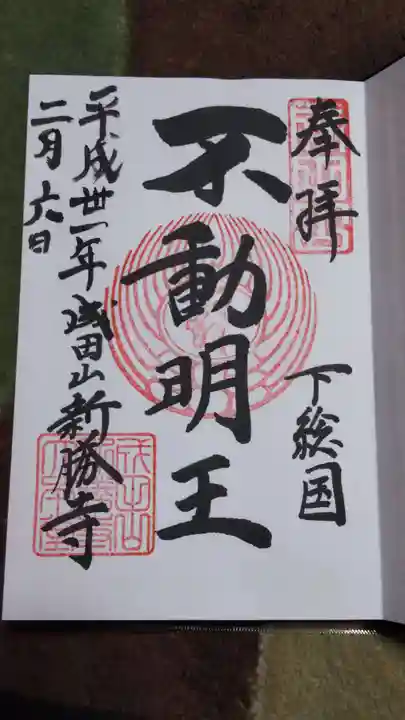 奉拝
下総国
不動明王
平成丗一年成田山新勝寺
二月六日